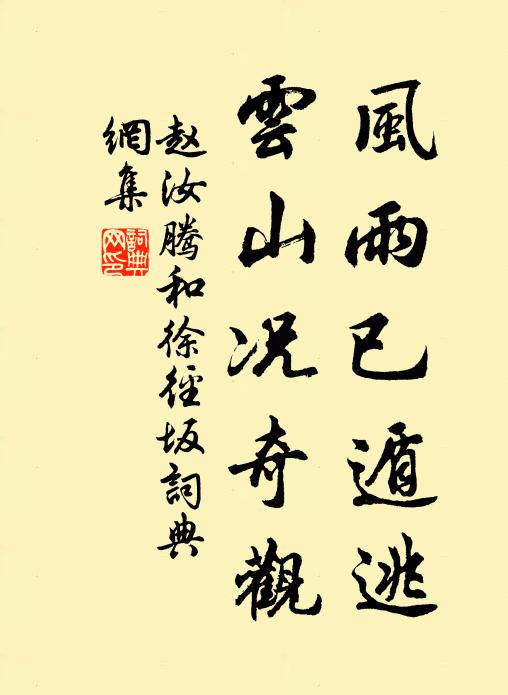 風雨已遁逃
雲山况奇觀
赵汝腾和徐径坂詞典
網集
詞典
网印